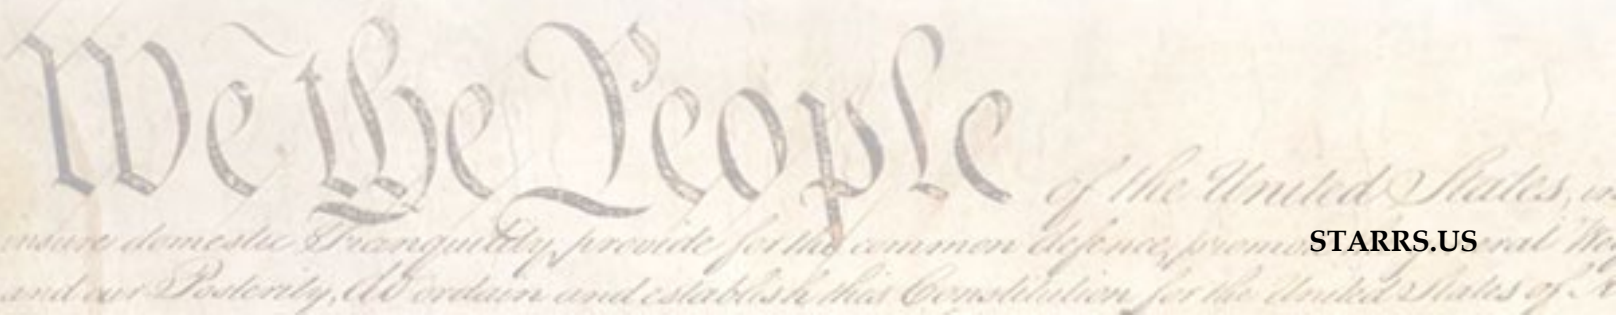 We the People of the United States, in
insure domestic Tranquility, provide for the common defence, promote
STARRS.US
and our Posterity, do ordain and establish this Constitution for the United States of